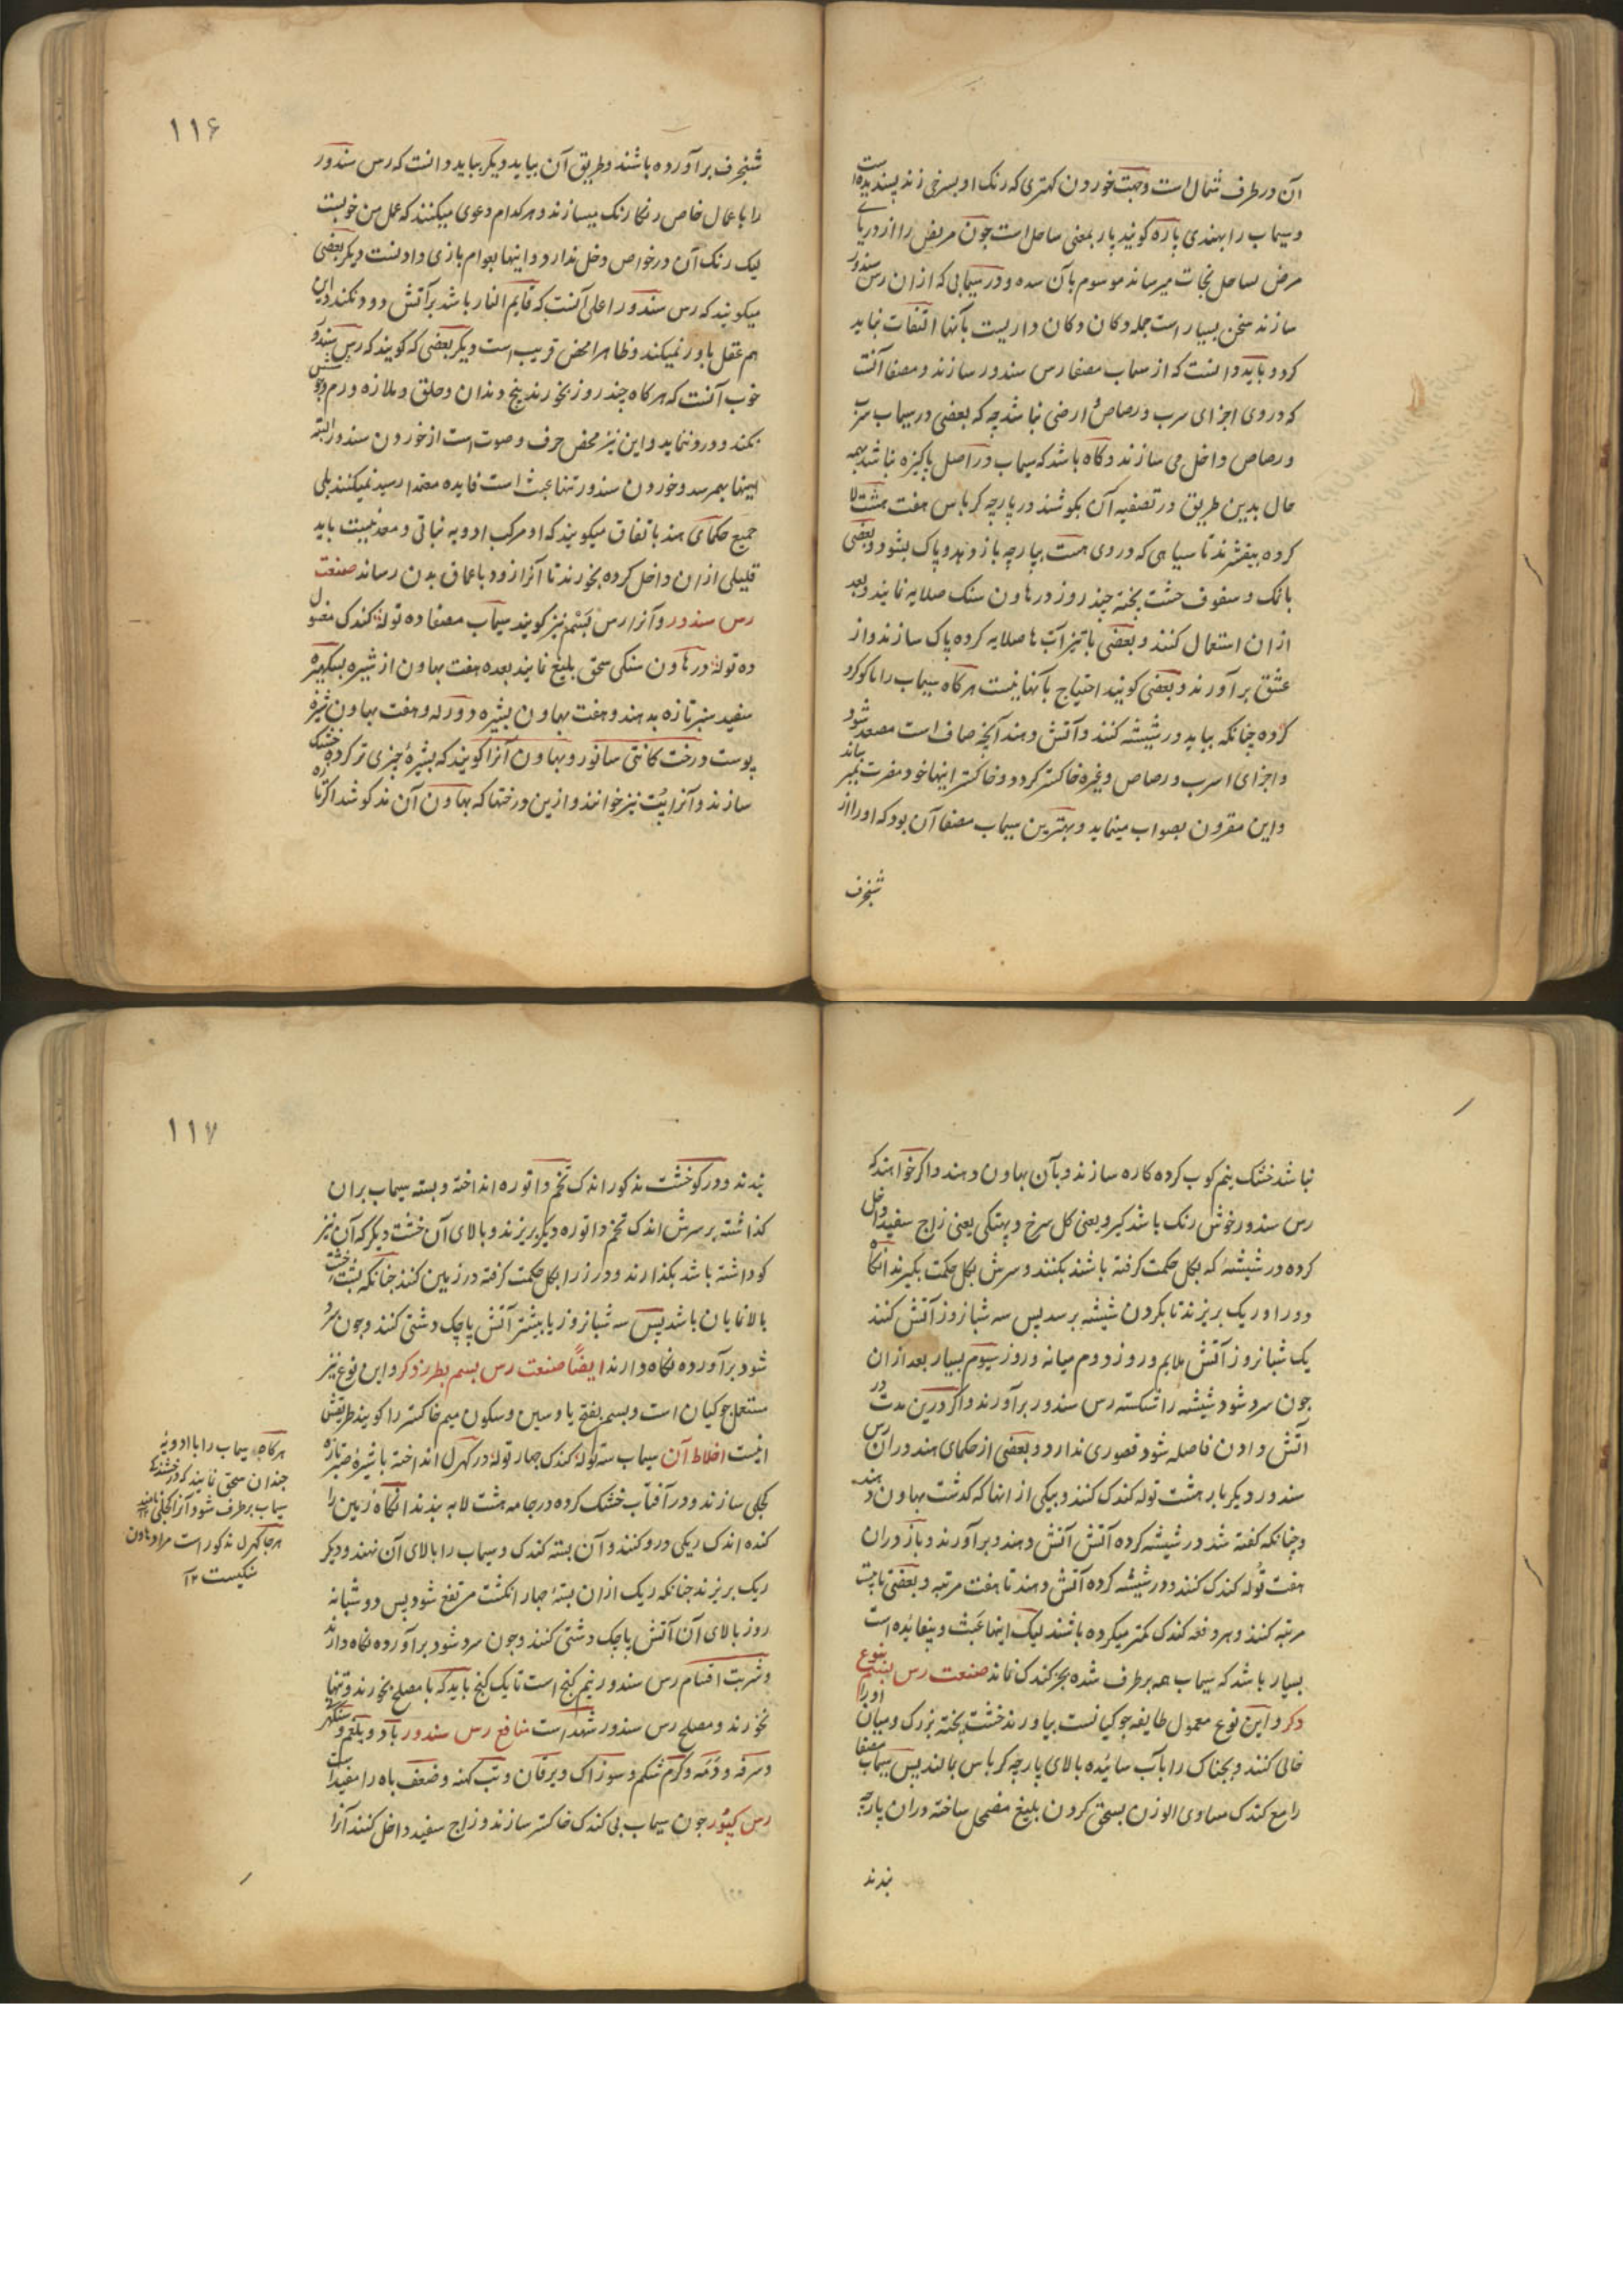 آن در طرف شمال است و جهت خوردن کهتری که رنک او بسرخی زند پسندیده است
و سیماب را بهندی پاره کویند پار بمعنی ساحل است چون مریض را از دریای
مرض بساحل نجات میرساند موسوم بآن شده و در سیمابی که ازان رس سندور
سازند سخن بسیار است جمله دکان دکان داریست بآنها التفات نباید
کرد و باید دانست که از سیماب مصفا رس سندور سازند و مصفا آنست
که در وی اجزای سرب و رصاص ارضی نباشد چه که بعضی در سیماب سرب
و رصاص داخل می سازند و کاه باشد که سیماب در اصل پاکیزه نباشد بهمه
حال بدین طریق در تصفیه آن بکوشند در پارچه کرباس هفت هشت لا
کرده بیفشرند تا سیاهی که در وی هست بپارچه باز دهد و پاک بشود و بعضی
با نمک و سفوف خشت پخته چند روز در هاون سنک صلایه نمایند و بعد
ازان استعمال کنند و بعضی با تیزآب ها صلایه کرده پاک سازند و از
عشق برآورند و بعضی کویند احتیاج بآنها نیست هرکاه سیماب را با کوکرد
کرده چنانکه بباید در شیشه کنند و آتش دهند آنچه صاف است مصعد شود
و اجزای اسرب و رصاص و غیره خاکستر کردد و خاکستر اینها خود مضرت بماند
و این مقرون بصواب مینماید و بهترین سیماب مصفا آن بود که او را از
شنجرف
۱۱۶
شنجرف برآورده باشند و طریق آن بیاید دیکر بباید دانست که رس سندور
را با عمال خاص رنکا رنک میسازند و هرکدام دعوی میکنند که عمل من خوبست
لیک رنک آن در خواص دخل ندارد و اینها بعوام بازی دادنست دیکر بعضی
میکویند که رس سندور اعلی آنست که قایم النار باشد بر آتش دود نکند و این
هم عقل باور نمیکند و ظاهرا محض فریب است دیکر بعضی که کویند که رس سندور
خوب آنست که هرکاه چند روز بخورند بیخ دندان و حلق و ملازه ورم و جوشش
نکند و درد ننماید و این نیز محض حرف و صوت است از خوردن سندور البته
اینها بهمرسد و خوردن سندور تنها عبث است فایده معتد رسید نمیکند بلی
جمیع حکمای هند باتفاق میکویند که او مرکب ادویه نباتی و معدنیست باید
قلیلی ازان داخل کرده بخورند تا آنرا زود باعماق بدن رساند صنعت
رس سندور و آنرا رس بَسْم نیز کویند سیماب مصفا ده توله کندک مغسول
ده توله در هاون سنکی سحق بلیغ نمایند بعده هفت بهاون از شیره بسکهپره
سفید سبز تازه بدهند و هفت بهاون بشیره دودله و هفت بهاون شیره
پوست درخت کانتی سانور و بهاون آنرا کویند که بشیرهٔ چیزی تر کرده خشک
سازند و آنرا پُت نیز خوانند و ازین درختها که بهاون آن مذکور شد اکر تازه
نباشد خشک نیم کوب کرده کاره سازند و بآن بهاون دهند و اکر خواهند که
رس سندور خوش رنک باشد کیرو یعنی کل سرخ و پهتکی یعنی زاج سفید داخل
کرده در شیشهٔ که بکل حکمت کرفته باشند بکنند و سرش بکل حکمت بکیرند آنکاه
دور او ریک بریزند تا بکردن شیشه برسد پس سه شبانروز آتش کنند
یک شبانروز آتش ملایم و روز دوم میانه و روز سیوم بسیار بعد ازان
چون سرد شود شیشه را شکسته رس سندور برآورند و اکر درین مدت در
آتش دادن فاصله شود قصوری ندارد و بعضی از حکمای هند دران رس
سندور دیکر بار هشت توله کندک کنند و بیکی از انها که کذشت بهاون دهند
و چنانکه کفته شد در شیشه کرده آتش آتش دهند و برآورند و باز دران
هفت توله کندک کنند و در شیشه کرده آتش دهند تا هفت مرتبه و بعضی تا بیست
مرتبه کنند و هر دفعه کندک کمتر میکرده باشند لیک اینها عبث و بیفایده است
بسیار باشد که سیماب همه برطرف شده بجز کندک نماند صنعت رس بسم بنوع
دکر و این نوع معمول طایفه جوکیانست بیاورند خشت پخته بزرک و میان او را
خالی کنند و بچناک را بآب سائیده بالای پارچه کرباس بمالند پس سیماب مصفا
را مع کندک مساوی الوزن بسحق کردن بلیغ مضمحل ساخته دران پارچه
بندند
۱۱۷
بندند و در کو خشت مذکور اندک تخم داتوره انداخته و بسته سیماب بران
کذاشته بر سرش اندک تخم داتوره دیکر بریزند و بالای آن خشت دیکر که آن نیز
کو داشته باشد بکذارند و درز را بکل حکمت کرفته در زمین کنند چنانکه پشت خشت
بالا نمایان باشد پس سه شبانروز یا بیشتر آتش پاچک دشتی کنند و چون سرد
شود برآورده نکاه دارند ایضاً صنعت رس بسم بطرز دکر و این نوع نیز
مستعمل جوکیان است و بسم بفتح با و سین و سکون میم خاکستر را کویند طریقش
اینست اخلاط آن سیماب سه توله کندک چهار توله در کهرل انداخته با شیرهٔ صبر تازه
کجلی سازند و در آفتاب خشک کرده در جامه هشت لا به بندند آنکاه زمین را
کنده اندک ریکی درو کنند و آن بسته کندک و سیماب را بالای آن نهند و دیکر
ریک بریزند چنانکه ریک ازان بستهٔ چهار انکشت مرتفع شود پس دو شبانه
روز بالای آن آتش پاچک دشتی کنند و چون سرد شود برآورده نکاه دارند
و شربت اقسام رس سندور نیم کنج است تا یک کنج باید که با مصلح بخورند و تنها
نخورند و مصلح رس سندور شهد است منافع رس سندور باد و بلغم و سنکرهنی
و سرفه و دَمَه و کرم شکم و سوزاک و یرقان و تب کهنه و ضعف باه را مفید است
رس کپُور چون سیماب بی کندک خاکستر سازند و زاج سفید داخل کنند آنرا
هرکاه سیماب را با ادویه
چندان سحق نمایند که درخشندکی
سیماب برطرف شود آنرا کجلی نامند
هرجا کهرل مذکور است مراد هاون
سنکیست ۱۲